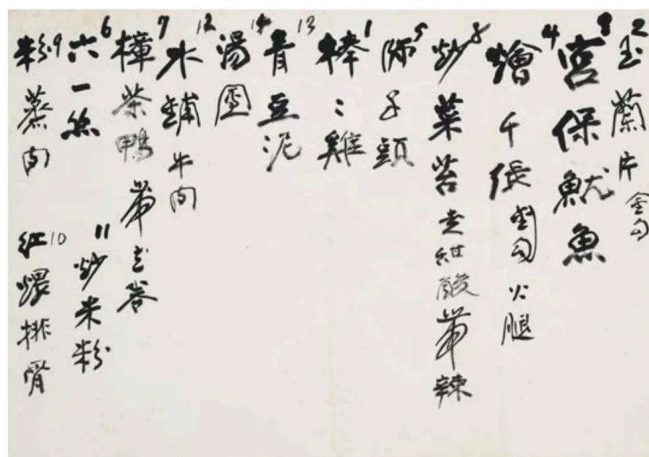 2 玉蘭片 金勾
3 宮保魷魚
4 燴千張 金勾火腿
8 炒菜苔 走紅酸帶辣
5 子頭
1 棒々雞
13 青豆泥
14 湯圓
12 水鋪牛肉
7 樟茶鴨 帶卷
6 六一絲
11 炒米粉
9 粉蒸肉
10 紅煨排骨